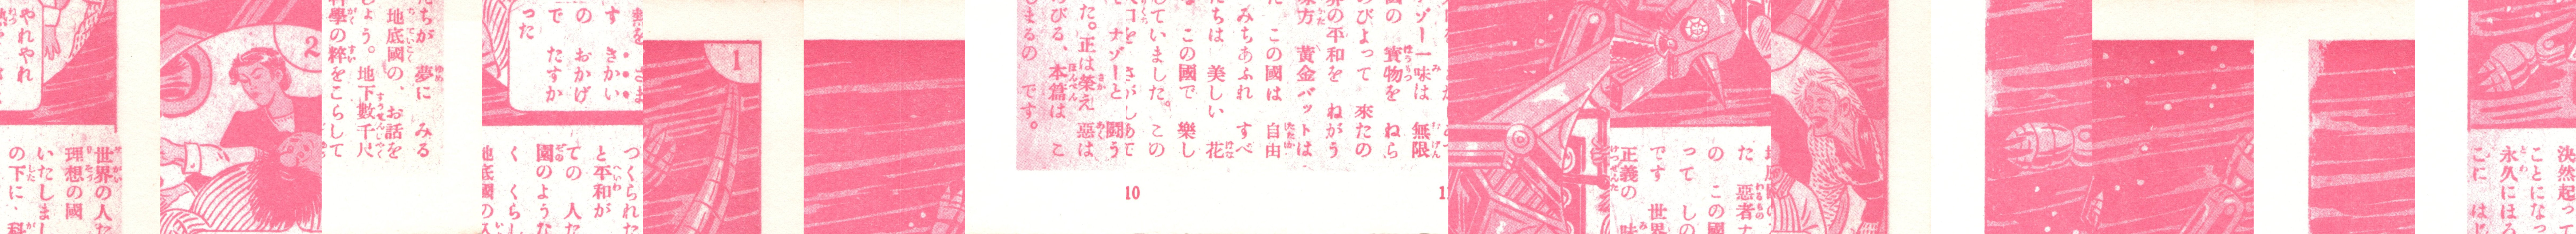 やれやれ
世界の人た
理想の國
いたしまし
の下に、科
2
たちが 夢に みる
地底國の、お話を
しょう。地下數千尺
科學の粹をこらして
さま
きかい
の おかげ
で たすか
った
つくられた
と平和が
ての 人た
園のような
く くらし
地底國の人
1
ゾー一味は 無限
國の 寶物を ねら
のびよって 來たの
界の平和を ねがう
味方 黄金バットは
た この國は 自由
みちあふれ すべ
たちは 美しい 花
る この國で 樂し
していました。この
口を さがしあて
ナゾーと 闘う
た。正は榮え 惡は
ろびる、本篇は こ
しまるの です。
10
た 惡者ナ
の この國
って しの
です 世界
正義の 味
決然起っ
ことになっ
永久にほろ
こに はじ